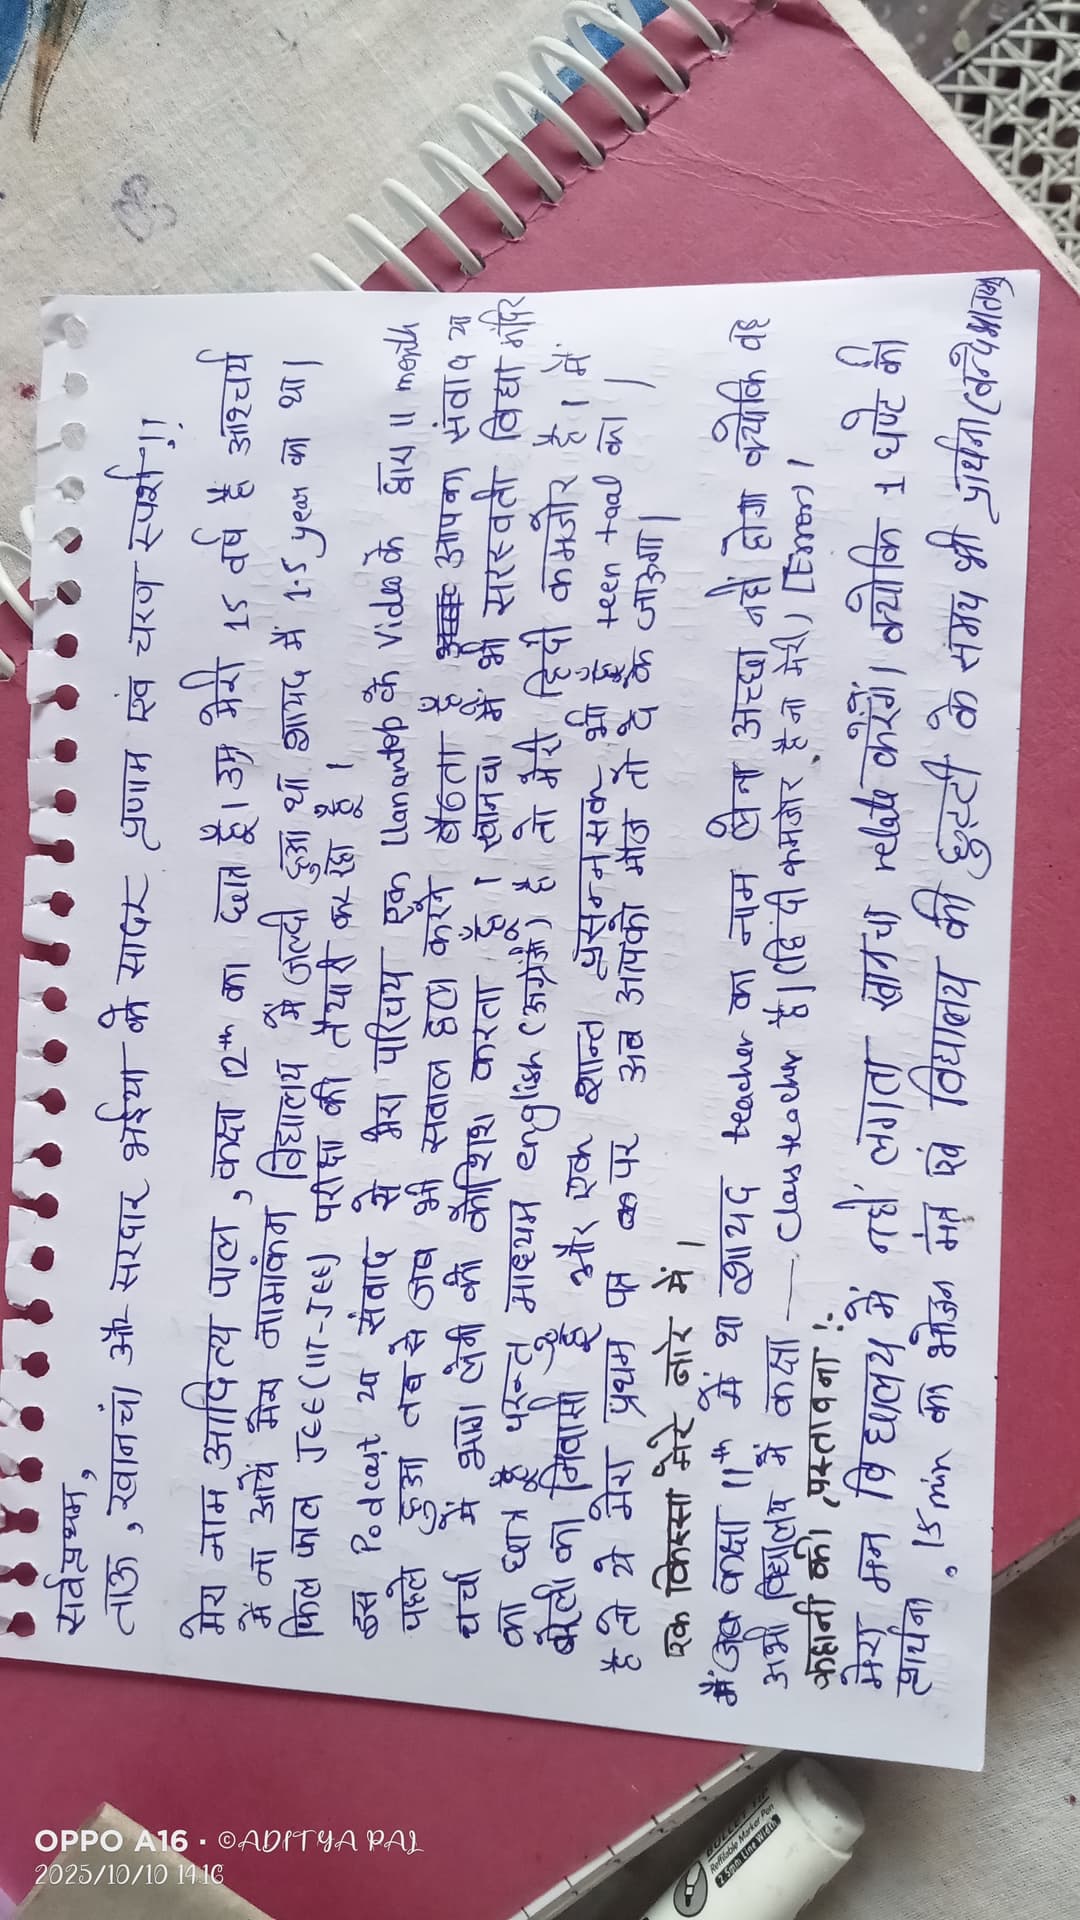 सर्वप्रथम,
ताऊ, खानचा औ सरदार भईया को सादर प्रणाम एंव चरण स्पर्श!!
मेरा नाम आदित्य पाल, कक्षा 12th का छात्र हूँ। उम्र मेरी 15 वर्ष है आश्चर्य
में ना आयें मेरा नामांकन विद्यालय में जल्दी हुआ था शायद मैं 1.5 year का था।
फिल फाल JEE (IIT-JEE) परीक्षा की तैयारी कर रहा हूँ।
इस Podcast या संवाद से मेरा परिचय एक के Video के द्वारा 11 month
पहले हुआ तब से जब भी सवाल हल करने बैठता हूँ आपका संवाद या
चर्चा में भाग लेनी की कोशिश करता हूँ। खानचा मैं भी सरस्वती विद्या मंदिर
का छात्र हूँ परन्तु माध्यम english (अंग्रेजी) है तो मेरी हिंदी कमजोर है। मैं
बरेली का निवासी हूँ और एक शान्त प्रसन्नसक भी हूँ teen taal का।
है तो ये मेरा प्रथम पत्र पर अब आपको मौज तो दे के जाऊगा।
एक किस्सा मेरे बारे में।
मैं कक्षा 11th में था शायद teacher का नाम लेना अच्छा नहीं होगा क्योकि वह
अभी विद्यालय में कक्षा — Class teacher है। (हिंदी कमजोर है ना मेरी) [Error]।
कहानी की, प्रस्तावना!:
मेरा मन विद्यालय में नहीं लगता खानचा relate करेगें। क्योकि 1 घण्टे की
प्रार्थना, 15 min का भोजन मंत्र एंव विद्यालय की छुट्टी के समय भी प्रार्थना (वन्देमातरम्
OPPO A16 · ©ADITYA PAL
2025/10/10 14:16
Refillable Marker Pen
2.5mm Line Width